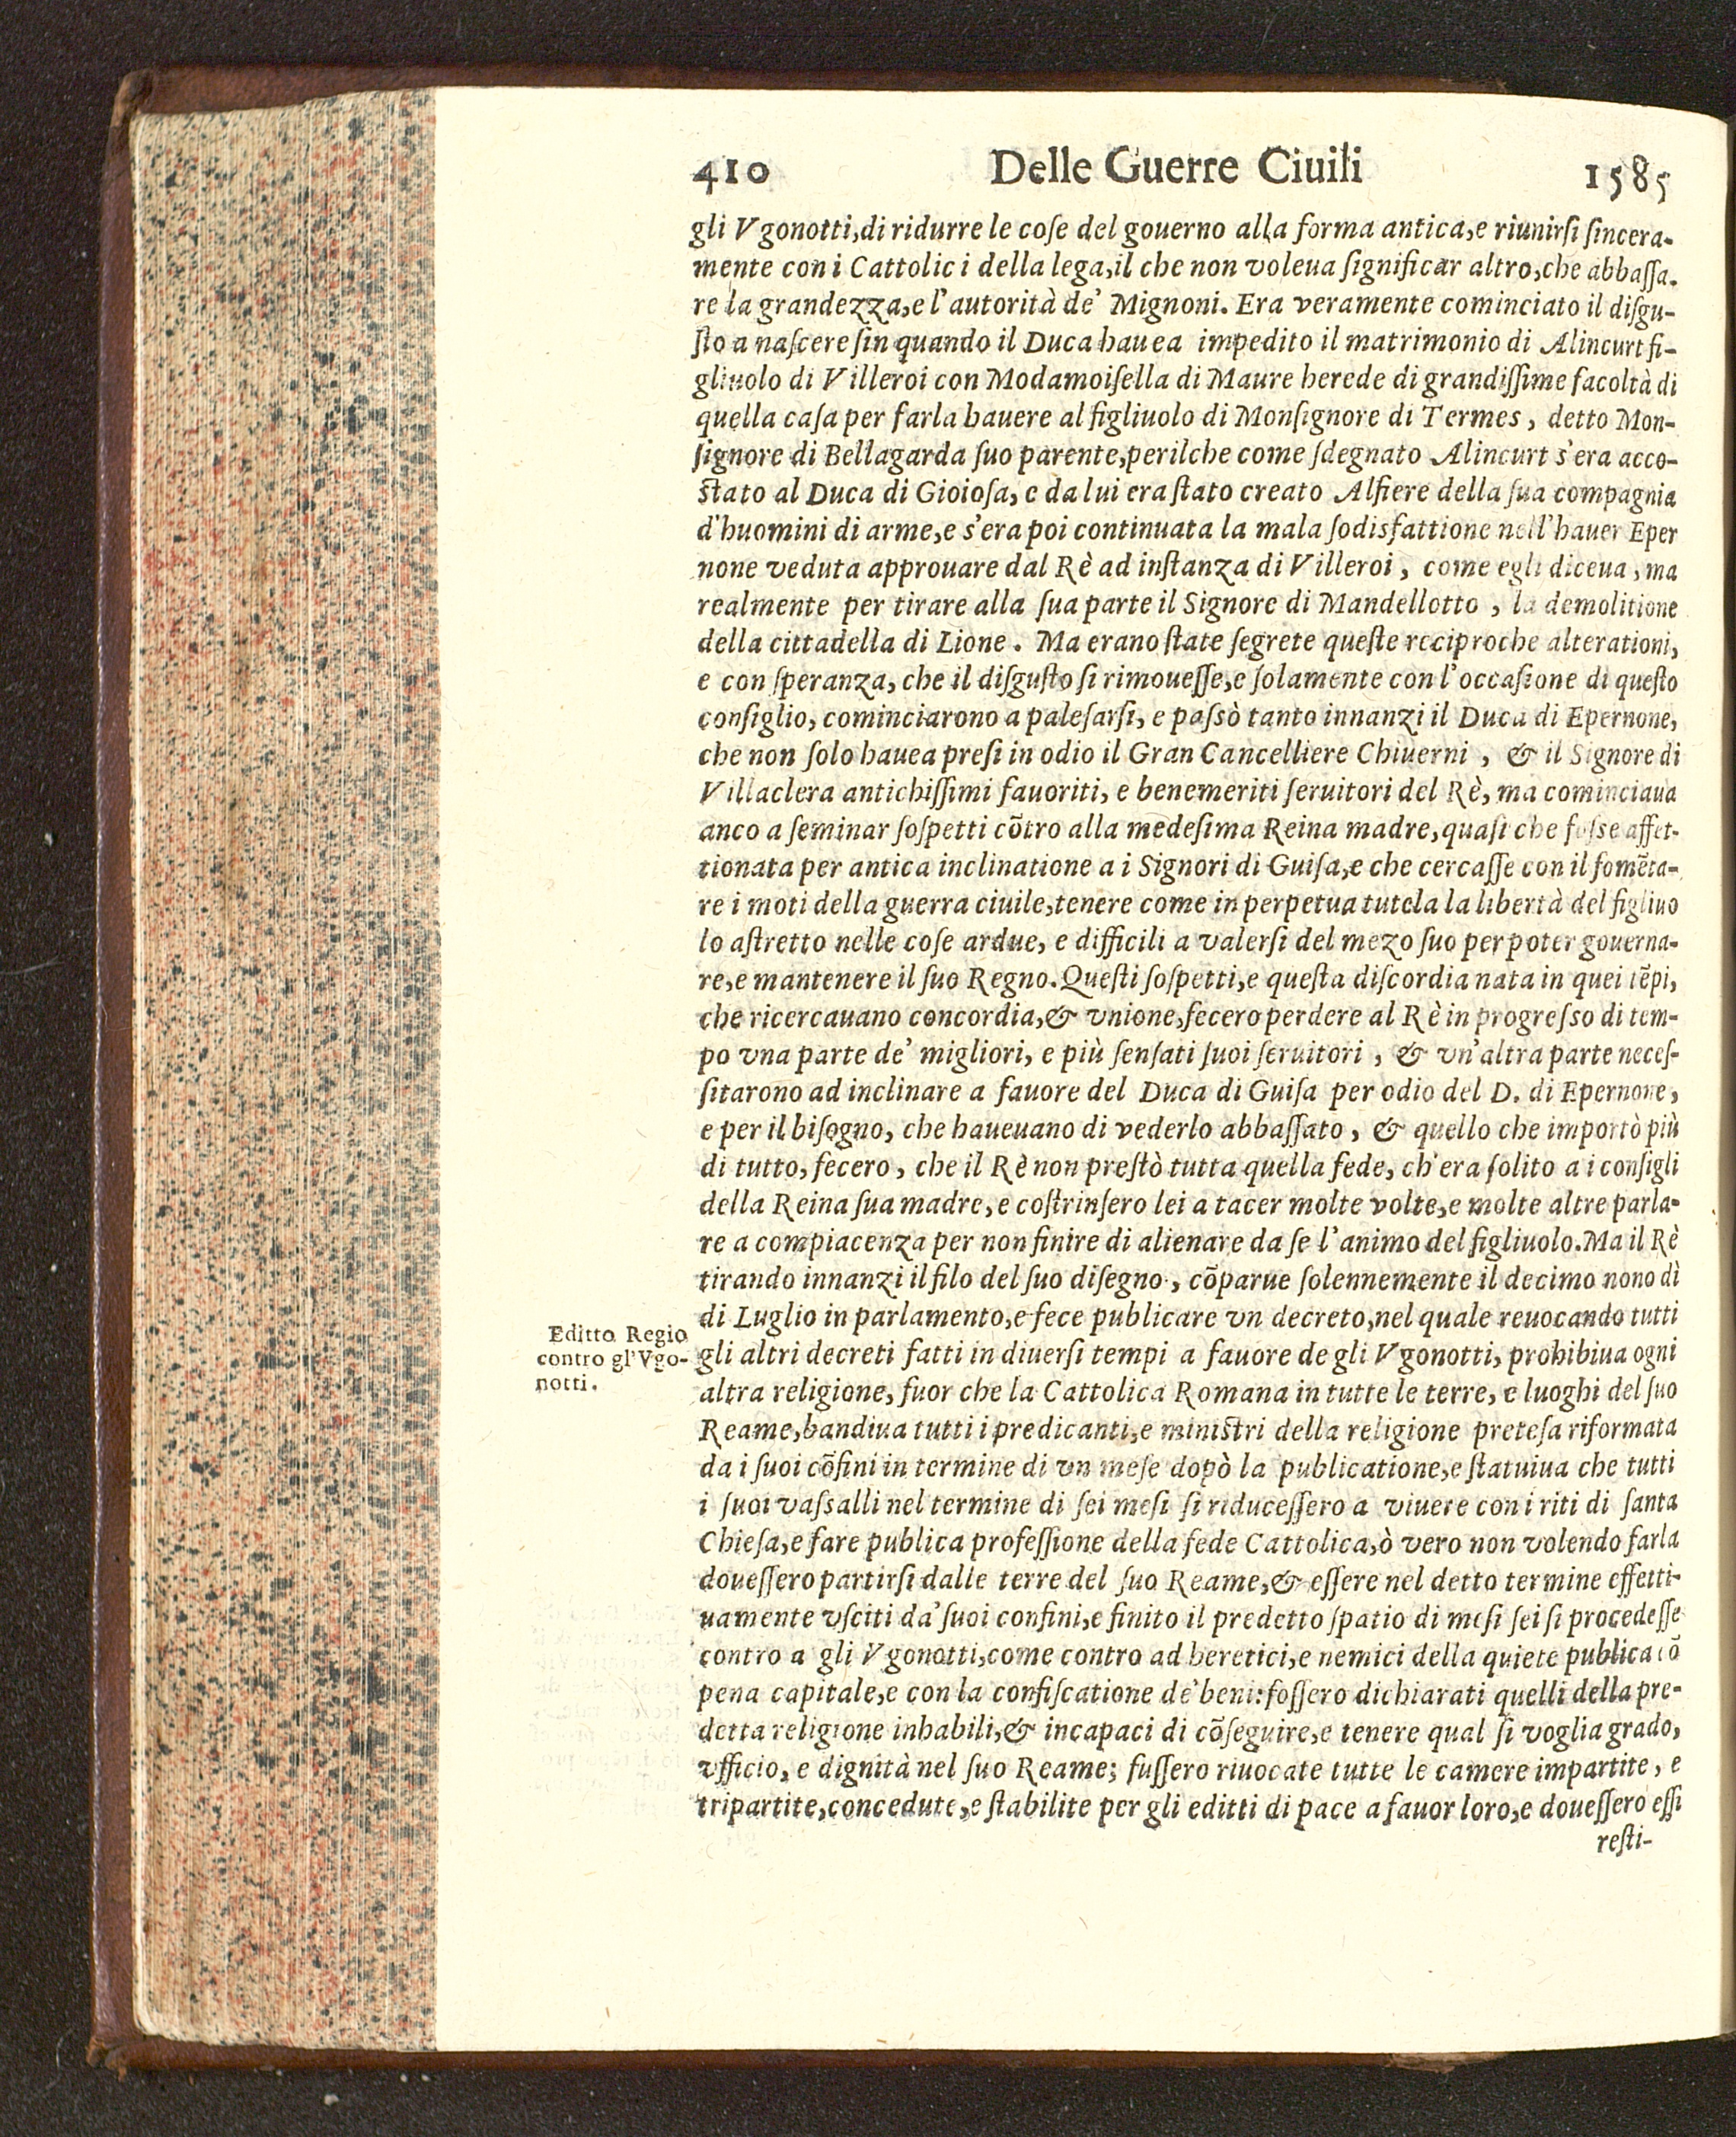 410 Delle Guerre Ciuili 1585
gli Vgonotti, di ridurre le coſe del gouerno alla forma antica, e riunirſi ſincera-
mente con i Cattolici della lega, il che non voleua ſignificar altro, che abbaſſa-
re la grandezza, e l'autorità de' Mignoni. Era veramente cominciato il diſgu-
ſto a naſcere ſin quando il Duca hauea impedito il matrimonio di Alincurt fi-
gliuolo di Villeroi con Modamoiſella di Maure herede di grandiſſime facoltà di
quella caſa per farla hauere al figliuolo di Monſignore di Termes, detto Mon-
ſignore di Bellagarda ſuo parente, perilche come ſdegnato Alincurt s'era acco-
ſtato al Duca di Gioioſa, e da lui era ſtato creato Alfiere della ſua compagnia
d'huomini di arme, e s'era poi continuata la mala ſodisfattione nell'hauer Eper
none veduta approuare dal Rè ad inſtanza di Villeroi, come egli diceua, ma
realmente per tirare alla ſua parte il Signore di Mandellotto, la demolitione
della cittadella di Lione. Ma erano ſtate ſegrete queſte reciproche alterationi,
e con ſperanza, che il diſguſto ſi rimoueſſe, e ſolamente con l'occaſione di queſto
conſiglio, cominciarono a paleſarſi, e paſsò tanto innanzi il Duca di Epernone,
che non ſolo hauea preſi in odio il Gran Cancelliere Chiuerni, & il Signore di
Villaclera antichiſſimi fauoriti, e benemeriti ſeruitori del Rè, ma cominciaua
anco a ſeminar ſoſpetti cõtro alla medeſima Reina madre, quaſi che foſse affet-
tionata per antica inclinatione a i Signori di Guiſa, e che cercaſſe con il fomẽta-
re i moti della guerra ciuile, tenere come in perpetua tutela la libertà del figliuo
lo aſtretto nelle coſe ardue, e difficili a valerſi del mezo ſuo per poter gouerna-
re, e mantenere il ſuo Regno. Queſti ſoſpetti, e queſta diſcordia nata in quei tẽpi,
che ricercauano concordia, & vnione, fecero perdere al Rè in progreſso di tem-
po vna parte de' migliori, e più ſenſati ſuoi ſeruitori, & vn'altra parte neceſ-
ſitarono ad inclinare a fauore del Duca di Guiſa per odio del D. di Epernone,
e per il biſogno, che haueuano di vederlo abbaſſato, & quello che importò più
di tutto, fecero, che il Rè non preſtò tutta quella fede, ch'era ſolito a i conſigli
della Reina ſua madre, e coſtrinſero lei a tacer molte volte, e molte altre parla-
re a compiacenza per non finire di alienare da ſe l'animo del figliuolo. Ma il Rè
tirando innanzi il filo del ſuo diſegno, cõparue ſolennemente il decimo nono dì
di Luglio in parlamento, e fece publicare vn decreto, nel quale reuocando tutti
Editto Regio
contro gl'Vgo-
notti.
gli altri decreti fatti in diuerſi tempi a fauore de gli Vgonotti, prohibiua ogni
altra religione, fuor che la Cattolica Romana in tutte le terre, e luoghi del ſuo
Reame, bandiua tutti i predicanti, e miniſtri della religione preteſa riformata
da i ſuoi cõfini in termine di vn meſe dopò la publicatione, e ſtatuiua che tutti
i ſuoi vaſsalli nel termine di ſei meſi ſi riduceſſero a viuere con i riti di ſanta
Chieſa, e fare publica profeſſione della fede Cattolica, ò vero non volendo farla
doueſſero partirſi dalle terre del ſuo Reame, & eſſere nel detto termine effetti-
uamente vſciti da' ſuoi confini, e finito il predetto ſpatio di meſi ſei ſi procedeſſe
contro a gli Vgonotti, come contro ad heretici, e nemici della quiete publica cõ
pena capitale, e con la confiſcatione de' beni: foſſero dichiarati quelli della pre-
detta religione inhabili, & incapaci di cõſeguire, e tenere qual ſi voglia grado,
vfficio, e dignità nel ſuo Reame; fuſſero riuocate tutte le camere impartite, e
tripartite, concedute, e ſtabilite per gli editti di pace a fauor loro, e doueſſero eſſi
reſti-